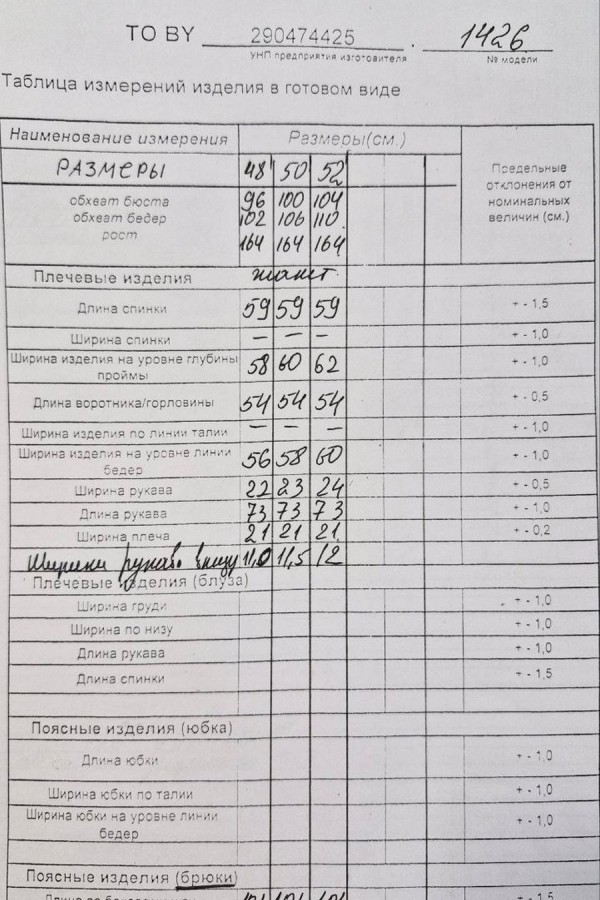 ТО BY 290474425 . 1426
УНП предприятия изготовителя № модели
Таблица измерений изделия в готовом виде
Наименование измерения Размеры(см.) Предельные отклонения от номинальных величин (см.)
РАЗМЕРЫ 48 50 52
обхват бюста 96 100 104
обхват бедер 102 106 110
рост 164 164 164
Плечевые изделия жакет
Длина спинки 59 59 59 + - 1,5
Ширина спинки — — — + - 1,0
Ширина изделия на уровне глубины проймы 58 60 62 + - 1,0
Длина воротника/горловины 54 54 54 + - 0,5
Ширина изделия по линии талии — — — + - 1,0
Ширина изделия на уровне линии бедер 56 58 60 + - 1,0
Ширина рукава 22 23 24 + - 0,5
Длина рукава 73 73 73 + - 1,0
Ширина плеча 21 21 21 + - 0,2
Ширина рукава внизу 11,0 11,5 12
Плечевые изделия (блуза)
Ширина груди + - 1,0
Ширина по низу + - 1,0
Длина рукава + - 1,0
Длина спинки + - 1,5
Поясные изделия (юбка)
Длина юбки + - 1,0
Ширина юбки по талии + - 1,0
Ширина юбки на уровне линии бедер + - 1,0
Поясные изделия (брюки)